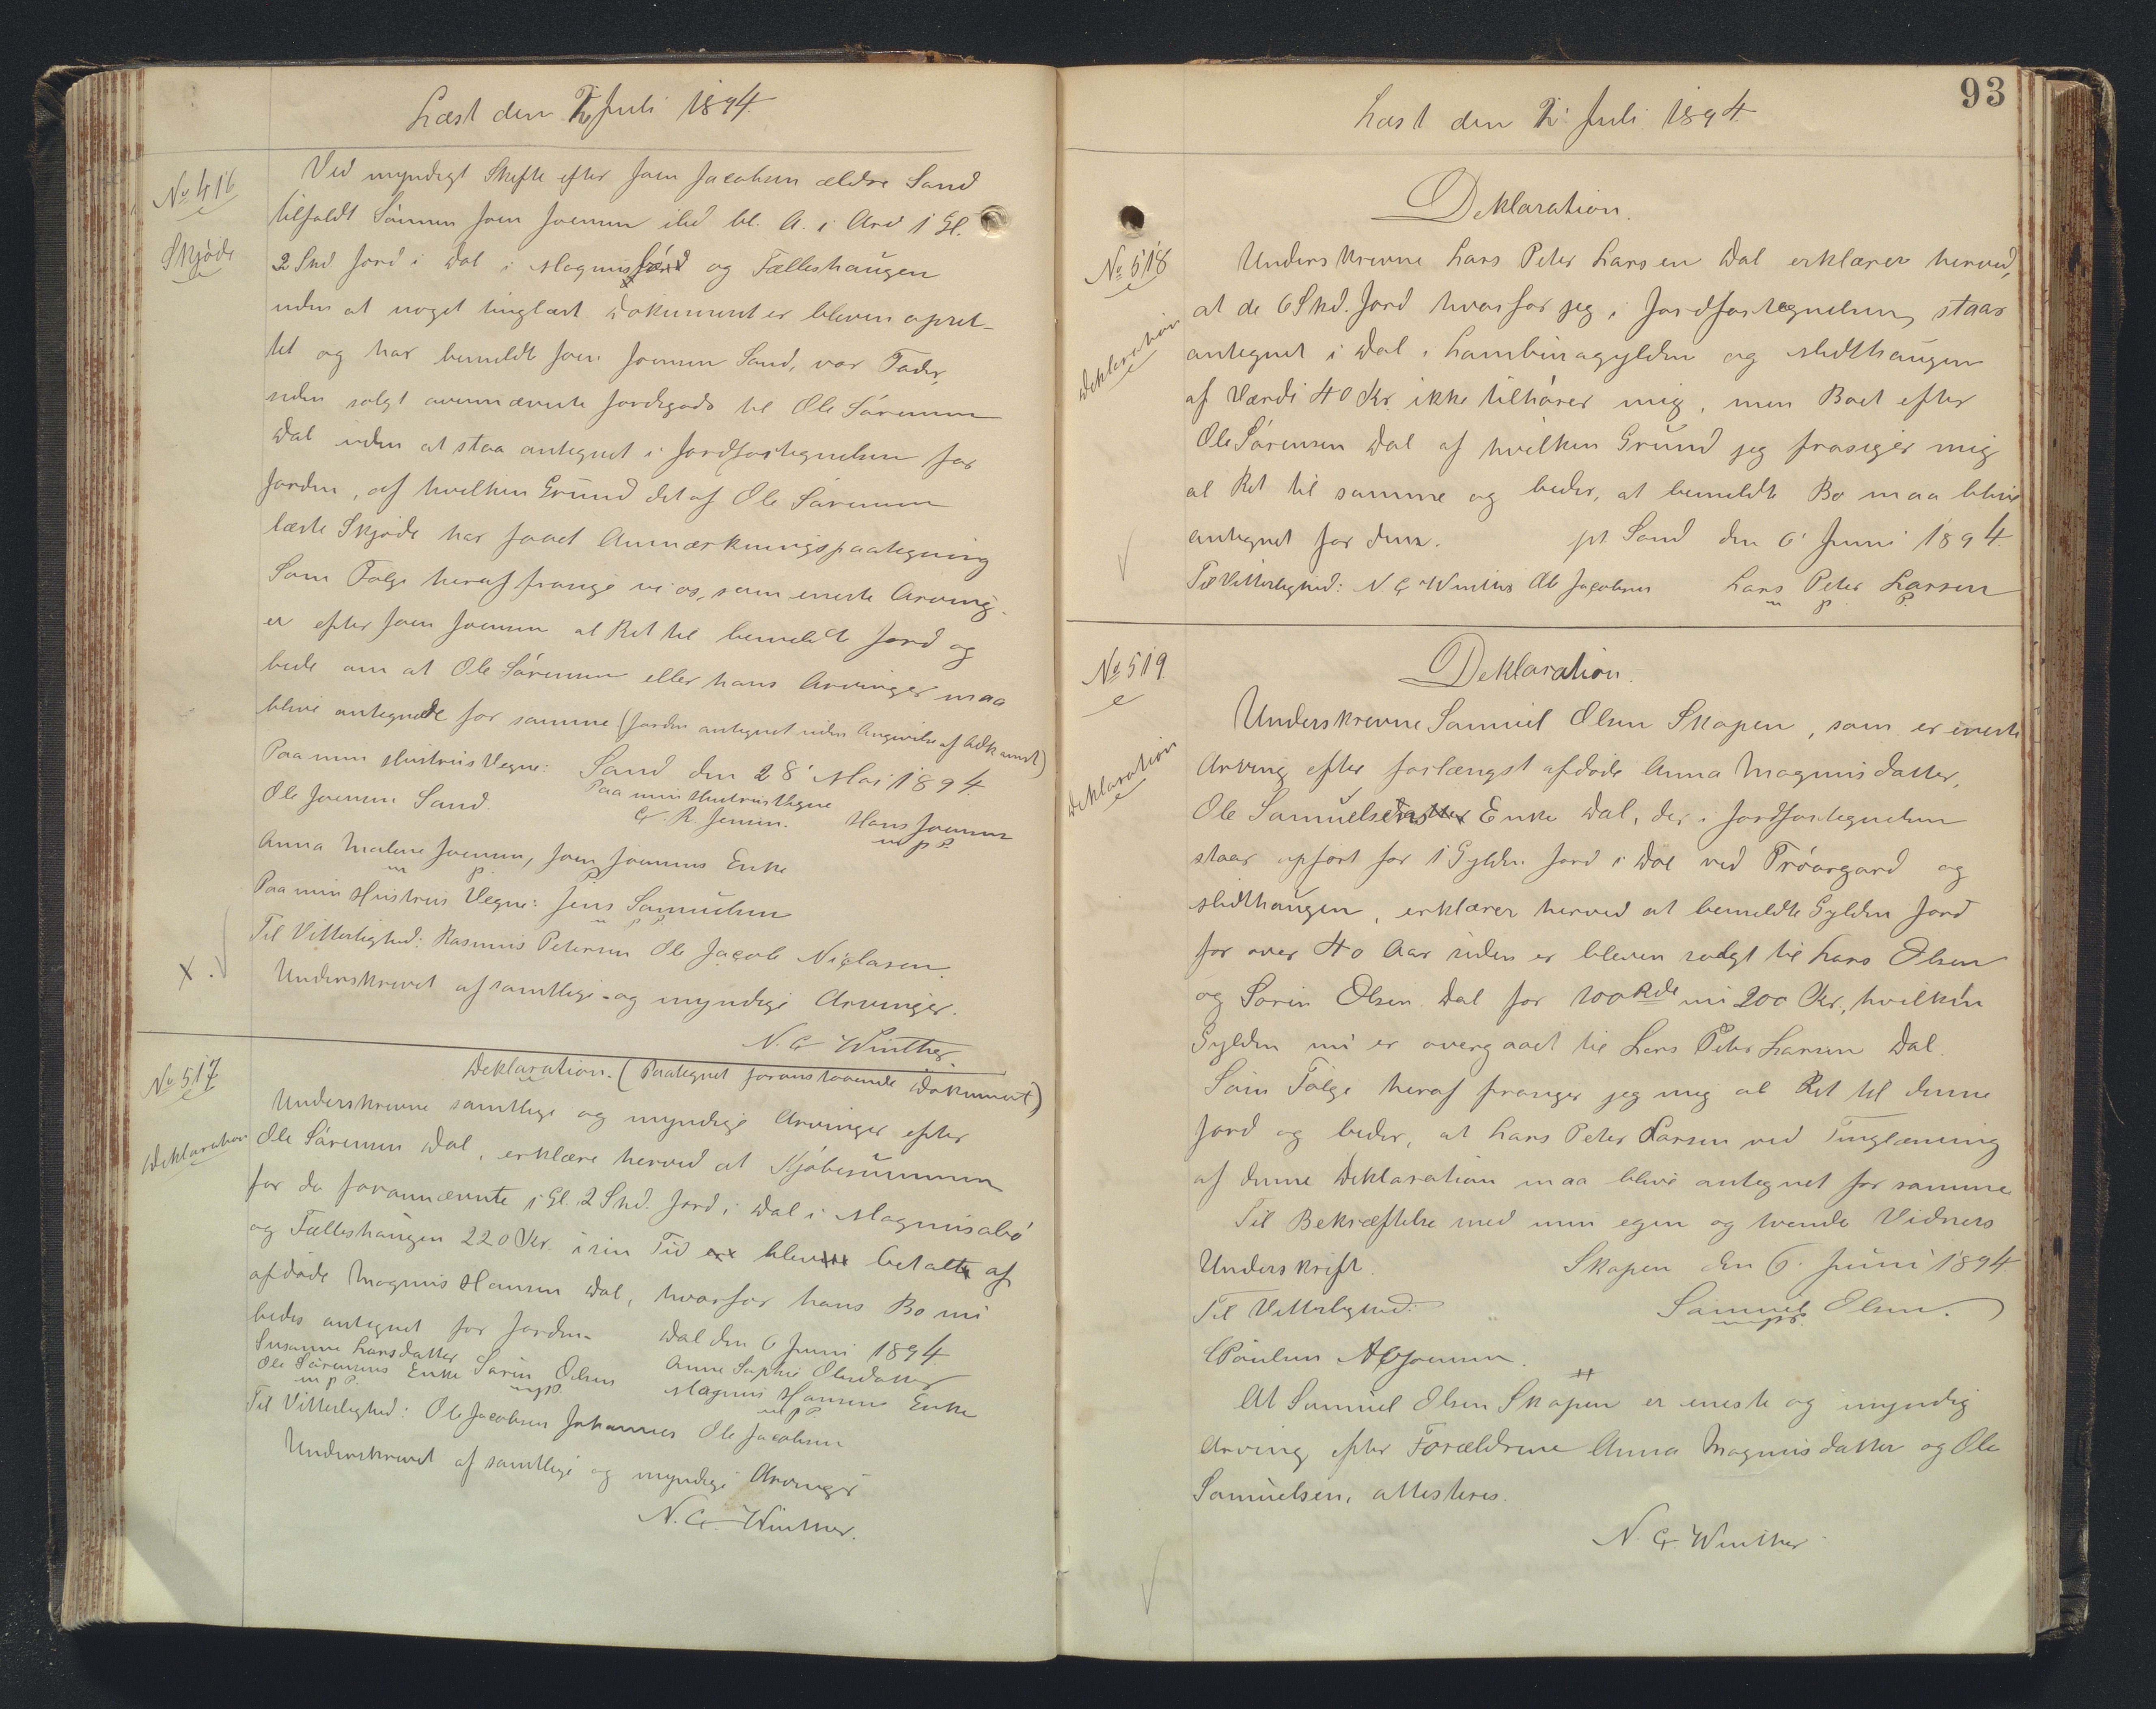 Læst den 2 Juli 1894.
No 416
Skjøde
Ved myndigt Skifte efter Joen Jacobsen ældre Sand
tilfaldt Sönnen Joen Joensen ibd bl. a. i Arv 1 Gl.
2 Skd Jord i Dal i Magnus og Fælleshaugen
uden at noget tinglæst Dokument er bleven opret-
tet og har bemeldte Joen Joensen Sand, vor Fader,
siden solgt ovennævnte Jordegods til Ole Sörensen
Dal uden at staa antegnet i Jordfortegnelsen for
Jorden, af hvilken Grund det af Ole Sörensen
læste Skjöde har faaet Anmærkningspaategning
Som Folge heraf frasige vi os, som eneste Arving-
er efter Joen Joensen al Ret til bemeldte Jord og
bede om at Ole Sörensen eller hans Arvinger maa
blive antegnede for samme (Jorden antegnet uden Angivelse af Adkomst)
Sand den 28' Mai 1894.
Paa min Hustrus Vegne: Paa min Hustrus Vegne
Ole Joensen Sand. G. R. Jensen. Hans Joensen
m p P.
Anna Malene Joensen, Joen Joensens Enke
m p.
Paa min Hustrus Vegne: Jens Samuelsen
m p P.
Til Vitterlighed: Rasmus Petersen Ole Jacob Niclasen.
x.
Underskrevet af samtlige og myndige Arvinger.
N. C. Winther.
No 517
Deklaration
Deklaration. (Paategnet foranstaaende Dokument)
Underskrevne samtlige og myndige Arvinger efter
Ole Sörensen Dal, erklære herved at Kjöbesummen
for de forannævnte 1 Gl. 2 Skd. Jord i Dal i Magnusabö
og Fælleshaugen 220 Kr. i sin Tid er bleven betalt af
afdöde Magnus Hansen Dal, hvorfor hans Bo nu
bedes antegnet for Jorden. Dal den 6 Juni 1894.
Susanne Larsdatter Anne Sophie Olesdatter
Ole Sörensens Enke Sörin Olsen Magnus Hansens Enke
m p P. mpP. m p P
Til Vitterlighed: Ole Jacobsen Johannes Ole Jacobsen
Underskrevet af samtlige og myndige Arvinger
N. C. Winther.
93
Læst den 2' Juli 1894.
Deklaration.
No 518
Deklaration
Underskrevne Lars Peter Larsen Dal erklærer herved,
at de 6 Skd. Jord hvorfor jeg i Jordfortegnelsen staar
antegnet i Dal i Lambinagylden og Midthaugen
af Værdi 40 Kr. ikke tilhörer mig, men Boet efter
Ole Sörensen Dal af hvilken Grund jeg frasiger mig
al Ret til samme og beder, at bemeldte Bo maa blive
antegnet for dem. pt Sand den 6' Juni 1894.
Til Vitterlighed: N. C. Winther Ole Jacobsen Lars Peter Larsen
m p P.
No 519
Deklaration
Deklaration.
Underskrevne Samuel Olsen Skopen, som er eneste
Arving efter forlængst afdöde Anna Magnusdatter,
Ole Samuelsens Enke Dal, der i Jordfortegnelsen
staar opfört for 1 Gylden Jord i Dal ved Tröargard og
Midthaugen, erklærer herved at bemeldte Gylden Jord
for over 40 Aar siden er bleven solgt til Lars Olsen
og Sörin Olsen Dal for 100 Rdl nu 200 Kr., hvilken
Gylden nu er overgaaet til Lars Peter Larsen Dal.
Som Fölge heraf frasiger jeg mig al Ret til denne
Jord og beder, at Lars Peter Larsen ved Tinglæsning
af denne Deklaration maa blive antegnet for samme
Til Bekræftelse med min egen og tvende Vidners
Underskrift. Skopen den 6. Juni 1894.
Til Vitterlighed: Samuel Olsen.
mpP.
Poulsen Joensen.
At Samuel Olsen Skopen er eneste og myndig
Arving efter Forældrene Anna Magnusdatter og Ole
Samuelsen, attesteres.
N. C. Winther